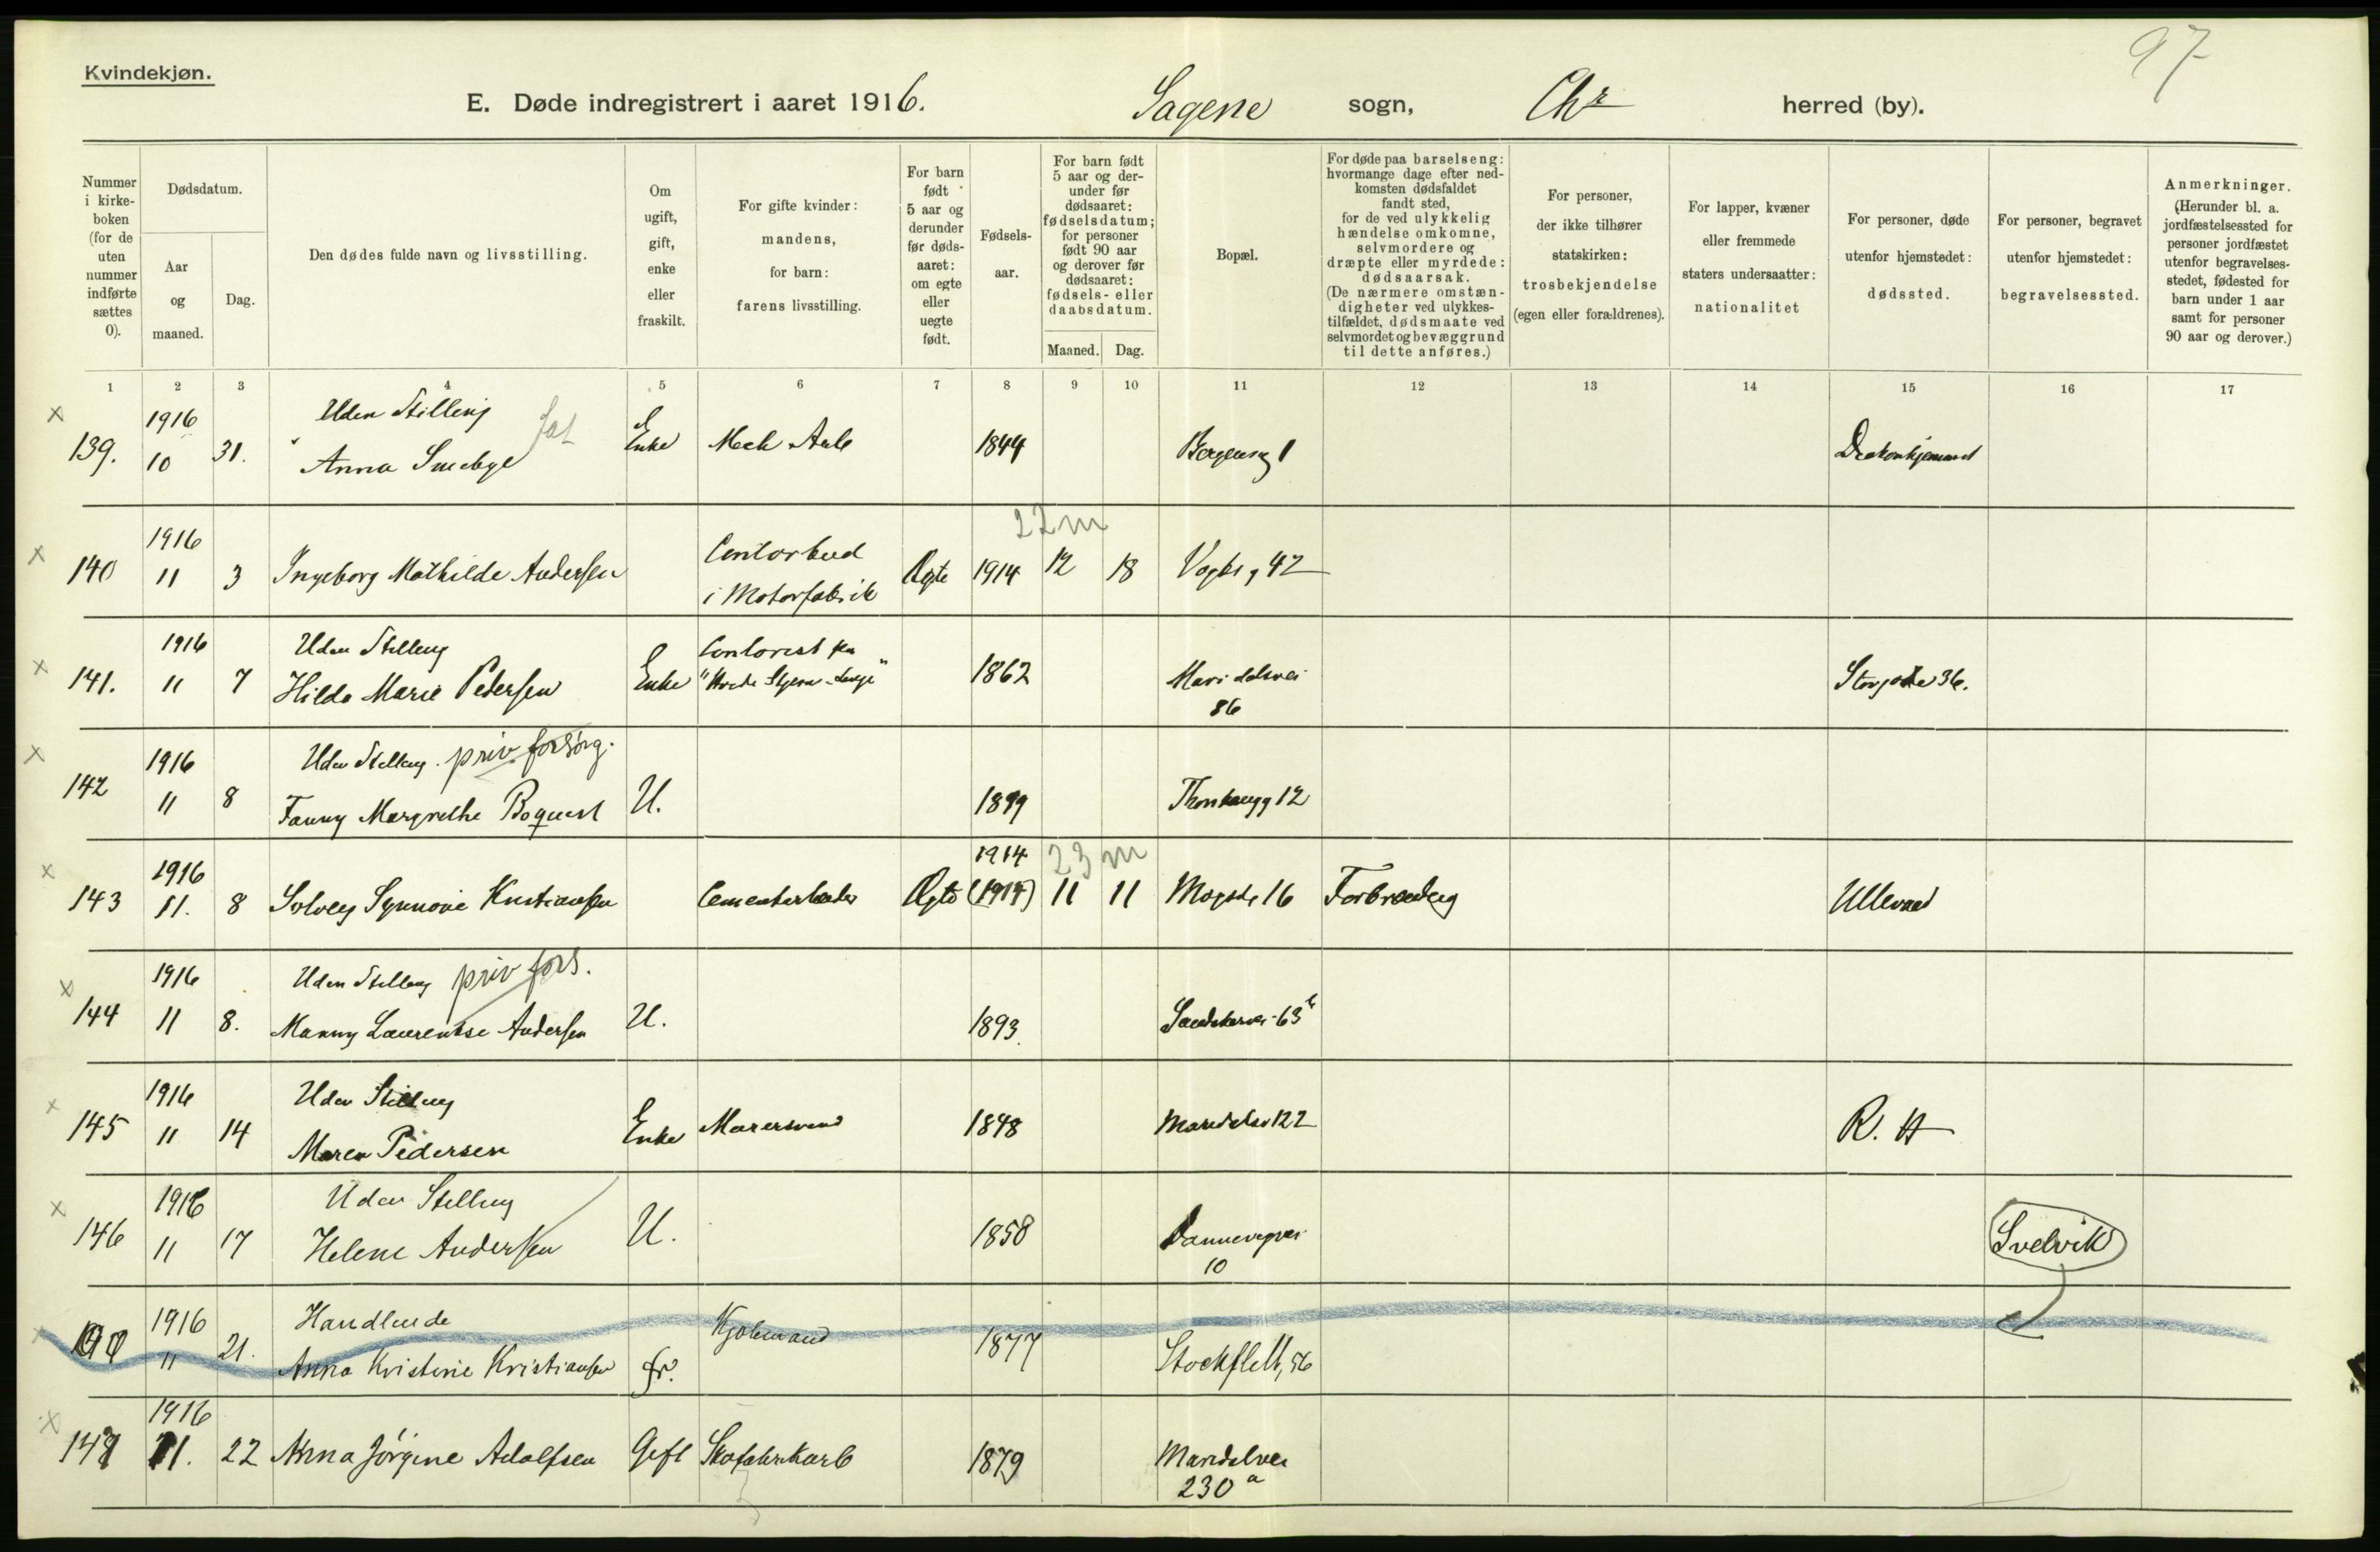 97
Kvindekjøn.
E. Døde indregistrert i aaret 1916. Sagene sogn, Chr herred (by).
Nummer i kirke-boken (for de uten nummer indførte sættes 0).
Dødsdatum.
Aar og maaned.
Dag.
Den dødes fulde navn og livsstilling.
Om ugift, gift, enke eller fraskilt.
For gifte kvinder: mandens, for barn: farens livsstilling.
For barn født 5 aar og derunder før døds-aaret: om egte eller uegte født.
Fødsels-aar.
For barn født 5 aar og der-under før dødsaaret: fødselsdatum; for personer født 90 aar og derover før dødsaaret: fødsels- eller daabsdatum.
Maaned. Dag.
Bopæl.
For døde paa barselseng: hvormange dage efter ned-komsten dødsfaldet fandt sted, for de ved ulykkelig hændelse omkomne, selvmordere og dræpte eller myrdede: dødsaarsak. (De nærmere omstæn-digheter ved ulykkes-tilfældet, dødsmaate ved selvmordet og bevæggrund til dette anføres.)
For personer, der ikke tilhører statskirken: trosbekjendelse (egen eller forældrenes).
For lapper, kvæner eller fremmede staters undersaatter: nationalitet
For personer, døde utenfor hjemstedet: dødssted.
For personer, begravet utenfor hjemstedet: begravelsessted.
Anmerkninger. (Herunder bl. a. jordfæstelsessted for personer jordfæstet utenfor begravelses-stedet, fødested for barn under 1 aar samt for personer 90 aar og derover.)
1 2 3 4 5 6 7 8 9 10 11 12 13 14 15 16 17
x 1916 Uden Stilling
139. 10 31. Anna Smebye Enke Mek Arb 1844 Bergensg 1 Diakonhjemmet
22 m
x 1916 Contorbud
140 11 3 Ingeborg Mathilde Andersen i Motorfabrik Ægte 1914 12 18 Vogtsg 42
x 1916 Uden Stilling Contorist
141. 11 7 Hilda Marie Pedersen Enke 1862 Maridalsvei 86 Storgate 36.
x 1916 Uden Stilling. priv forsørg.
142 11 8 Fanny Margrethe Boquist U. 1899 12
1914 23 m
x 1916
143 11. 8 Solveig Synnøve Kristiansen Cementarbeider Ægte (1914) 11 11 16 Forbrænding Ullevaal
x 1916 Uden Stilling priv fors.
144 11 8. Manny Laurentse Andersen U. 1893 Sandakervei 63 b
x 1916 Uden Stilling
145 11 14 Maren Pedersen Enke Murersvend 1848 Maridalsv 122 R. H
x 1916 Uden Stilling
146 11 17 Helene Andersen U. 1858 Dannevigsvei 10 Svelvik
x 1916 Handlende Kjøbmand
11 21. Anna Kristine Kristiansen fr. 1877 Stockflett, 56
x 1916
147 11. 22 Anna Jörgine Adolfsen Gift Skofabrikarb 1879 Maridalsvei
230 a